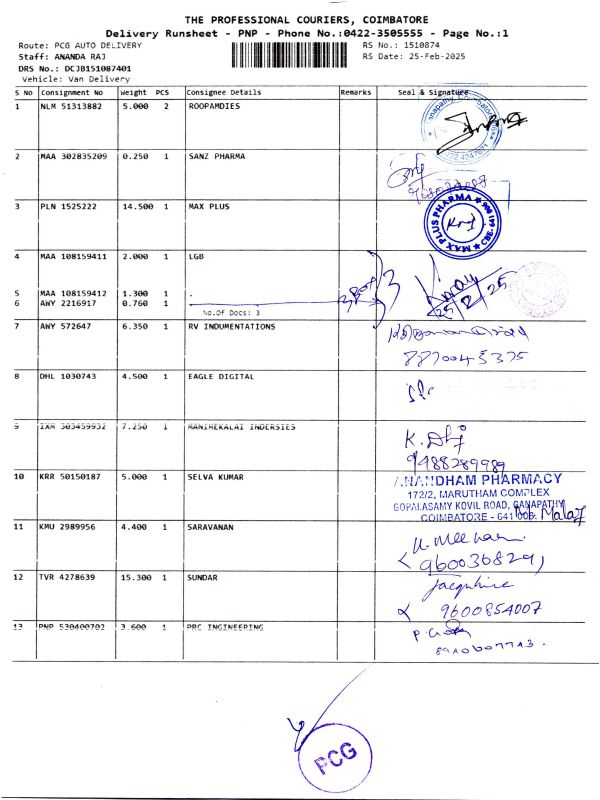 THE PROFESSIONAL COURIERS, COIMBATORE
Delivery Runsheet - PNP - Phone No.:0422-3505555 - Page No.:1
Route: PCG AUTO DELIVERY RS No.: 1510874
Staff: ANANDA RAJ RS Date: 25-Feb-2025
DRS No.: DCJB151087401
Vehicle: Van Delivery
S No Consignment No Weight PCS Consignee Details Remarks Seal & Signature
1 NLM 51313882 5.000 2 ROOPAMDIES
2 MAA 302835209 0.250 1 SANZ PHARMA
3 PLN 1525222 14.500 1 MAX PLUS
MAX PLUS PHARMA
4 MAA 108159411 2.000 1 LGB
5 MAA 108159412 1.300 1 .
6 AWY 2216917 0.760 1
25/2/25
No.Of Docs: 3
7 AWY 572647 6.350 1 RV INDUMENTATIONS
8870045375
8 DHL 1030743 4.500 1 EAGLE DIGITAL
9 IXM 303459932 7.250 1 MANIMEKALAI INDERSIES
9488289989
10 KRR 50150187 5.000 1 SELVA KUMAR
ANANDHAM PHARMACY
172/2, MARUTHAM COMPLEX
GOPALASAMY KOVIL ROAD, GANAPATHY
COIMBATORE - 641 006.
11 KMU 2989956 4.400 1 SARAVANAN
12 TVR 4278639 15.300 1 SUNDAR
9600854007
13 PNP 530400702 3.600 1 PRC INGINEERING
PCG